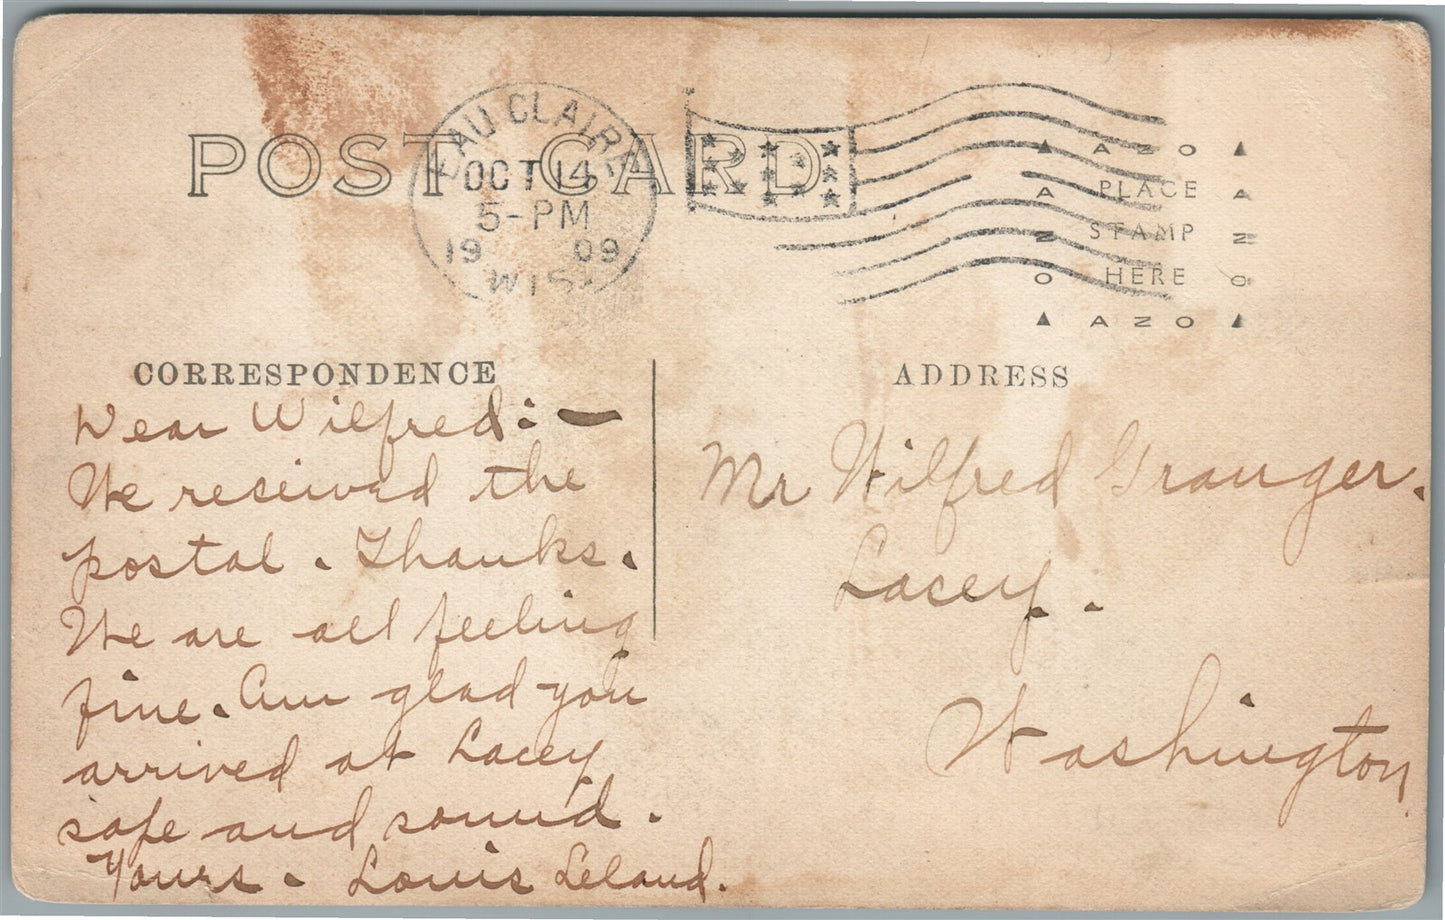 POST CARD
EAU CLAIRE
OCT 14
5-PM
1909
WIS.
▲ AZO ▲
PLACE
STAMP
HERE
AZO
AZO
▲ AZO ▲
CORRESPONDENCE
Dear Wilfred:—
We received the
postal. Thanks.
We are all feeling
fine. Am glad you
arrived at Lacey
safe and sound.
Yours. Louis Leland.
ADDRESS
Mr Wilfred Granger.
Lacey.
Washington.